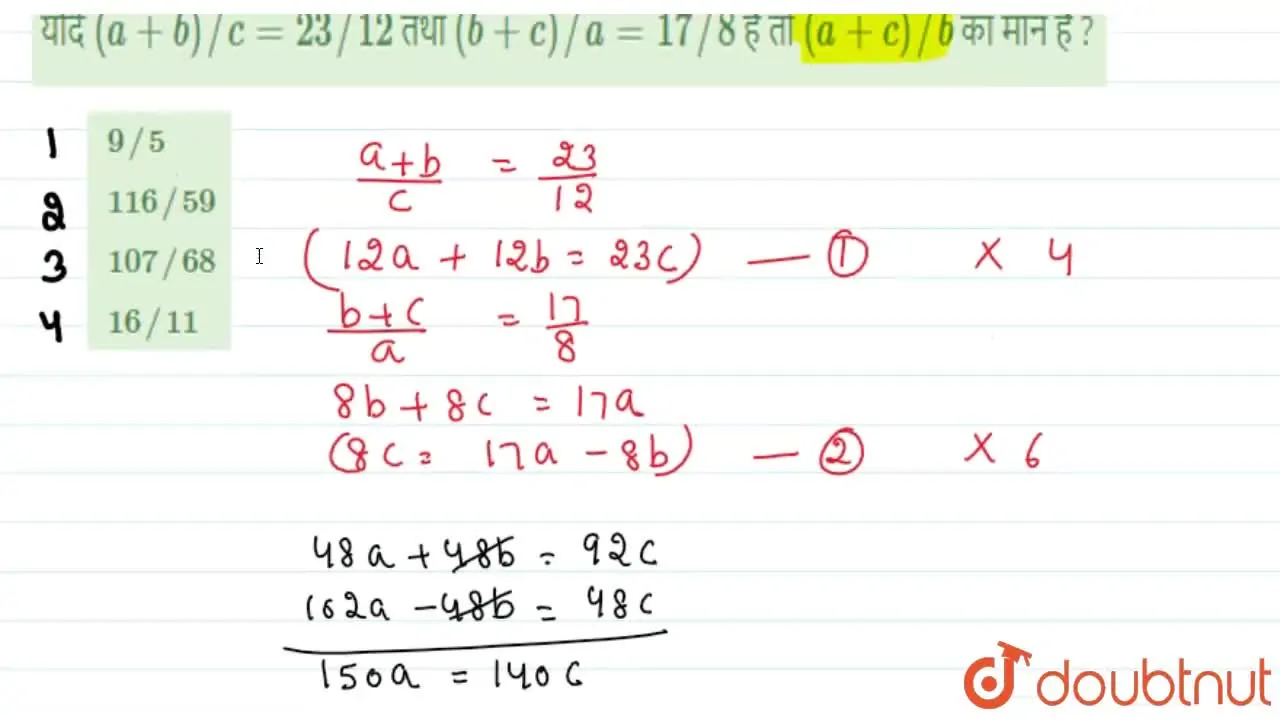 यदि (a + b) / c = 23 / 12 तथा (b + c) / a = 17 / 8 है तो (a + c) / b का मान है ?
1 9 / 5
2 116 / 59
3 107 / 68
4 16 / 11
a+b/c = 23/12
(12a + 12b = 23c) — ① × 4
b+c/a = 17/8
8b + 8c = 17a
(8c = 17a - 8b) — ② × 6
48a + 48b = 92c
102a - 48b = 48c
150a = 140c
doubtnut